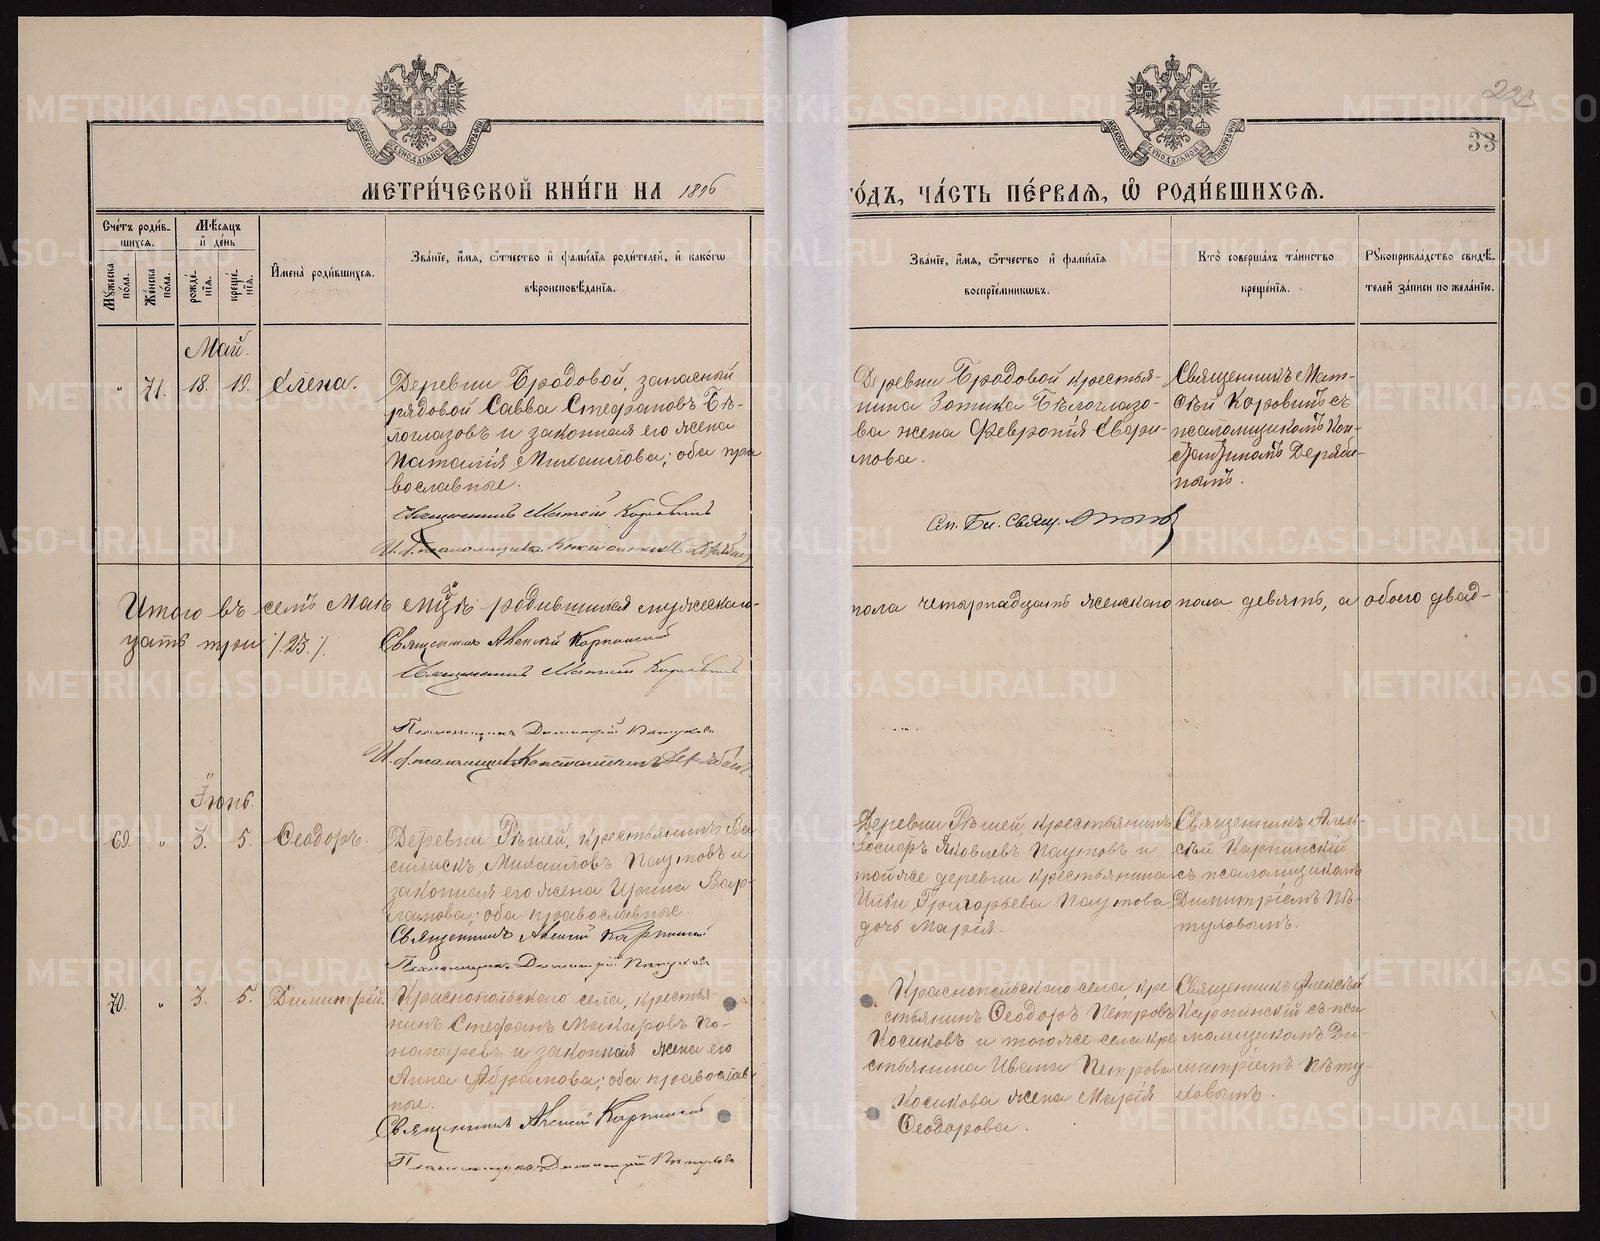 223
33
МЕТРИ́ЧЕСКОЙ КНИ́ГИ НА 1896
ГО́ДЪ, ЧА́СТЬ ПЕ́РВАЯ, Ѡ РОДИ́ВШИХСЯ.
Сче́тъ роди́в-
шихся.
Му́жеска по́ла.
Же́нска по́ла.
Мѣ́сяцъ
и де́нь
рожде́-
нїя.
креще́-
нїя.
И҆мена̀ роди́вшихся.
Зва́нїе, и҆́мя, ѻ҆́тчество и҆ фами́лїя роди́телей, и҆ како́гѡ
вѣроисповѣ́данїя.
Зва́нїе, и҆́мя, ѻ҆́тчество и҆ фами́лїя
воспрїе́мникѡвъ.
Кто̀ соверша́лъ та́инство
креще́нїя.
Рꙋкоприкла́дство свидѣ́-
телей за́писи по жела́нїю.
Май.
" 71. 18. 19. Елена.
Деревни Бродовой, запасный
рядовой Савва Стефановъ Бѣ-
логлазовъ и законная его жена
Наталія Михаилова; оба пра
вославные.
Священникъ Матѳій Коровинъ
И. д. псаломщика Константинъ Дерябинъ
Деревни Бродовой крестья-
нина Зотика Бѣлоглазо-
ва жена Февронія Спири-
нова.
Священникъ Мат-
ѳѣй Коровинъ съ
псаломщикомъ Кон-
стантиномъ Деряби-
нымъ.
Итого въ семъ Маѣ мцѣ родившихся мужескаго
пола четырнадцать женскаго пола девять, а обоего двад-
цать три /.23./.
Священникъ Алексій Карпинскій
Священникъ Матѳій Коровинъ
Псаломщикъ Димитрій Пѣтуховъ
И. д. псаломщика Константинъ Дерябинъ
Іюнь.
69. " 3. 5. Ѳеодоръ.
Деревни Рѣшей, крестьянинъ Ва
силискъ Михаиловъ Паутовъ и
законная его жена Ирина Вар-
ламова; оба православные.
Священникъ Алексій Карпинскій
Псаломщикъ Димитрій Пѣтуховъ
Деревни Рѣшей, крестьянинъ
Яковлевъ Паутовъ и
той же деревни крестьянина
Григорьева Паутова
дочь Марія.
Священникъ Алек-
сѣй Карпинскій
съ псаломщикомъ
Димитріемъ Пѣ-
туховымъ.
70. " 3. 5. Димитрій.
Краснопольскаго села, крестья-
нинъ Стефанъ Макаровъ По-
номаревъ и законная жена его
Анна Абрамова; оба православ
ные.
Священникъ Алексій Карпинскій
Псаломщикъ Димитрій Пѣтуховъ
Краснопольскаго села, кре
стьянинъ Ѳеодоръ Петровъ
Носиковъ и того же села кре
стьянина Ивана Петрова
Носикова жена Марія
Ѳеодорова.
Священникъ Алексѣй
Карпинскій съ пса
ломщикомъ Ди-
митріемъ Пѣту-
ховымъ.
METRIKI.GASO-URAL.RU